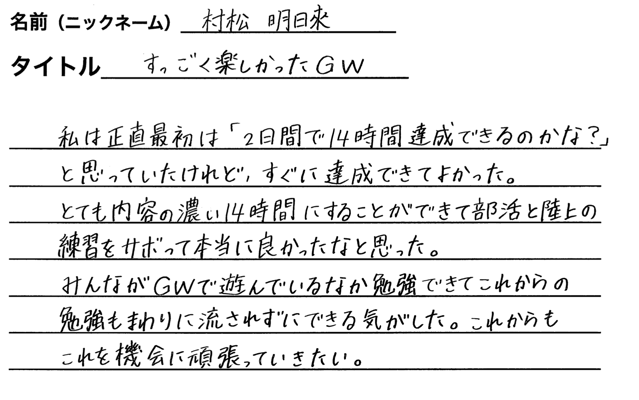 名前（ニックネーム） 村松 明日来
タイトル すっごく楽しかったGW
私は正直最初は「2日間で14時間達成できるのかな？」
と思っていたけれど、すぐに達成できてよかった。
とても内容の濃い14時間にすることができて部活と陸上の
練習をサボって本当に良かったなと思った。
みんながGWで遊んでいるなか勉強できてこれからの
勉強もまわりに流されずにできる気がした。これからも
これを機会に頑張っていきたい。